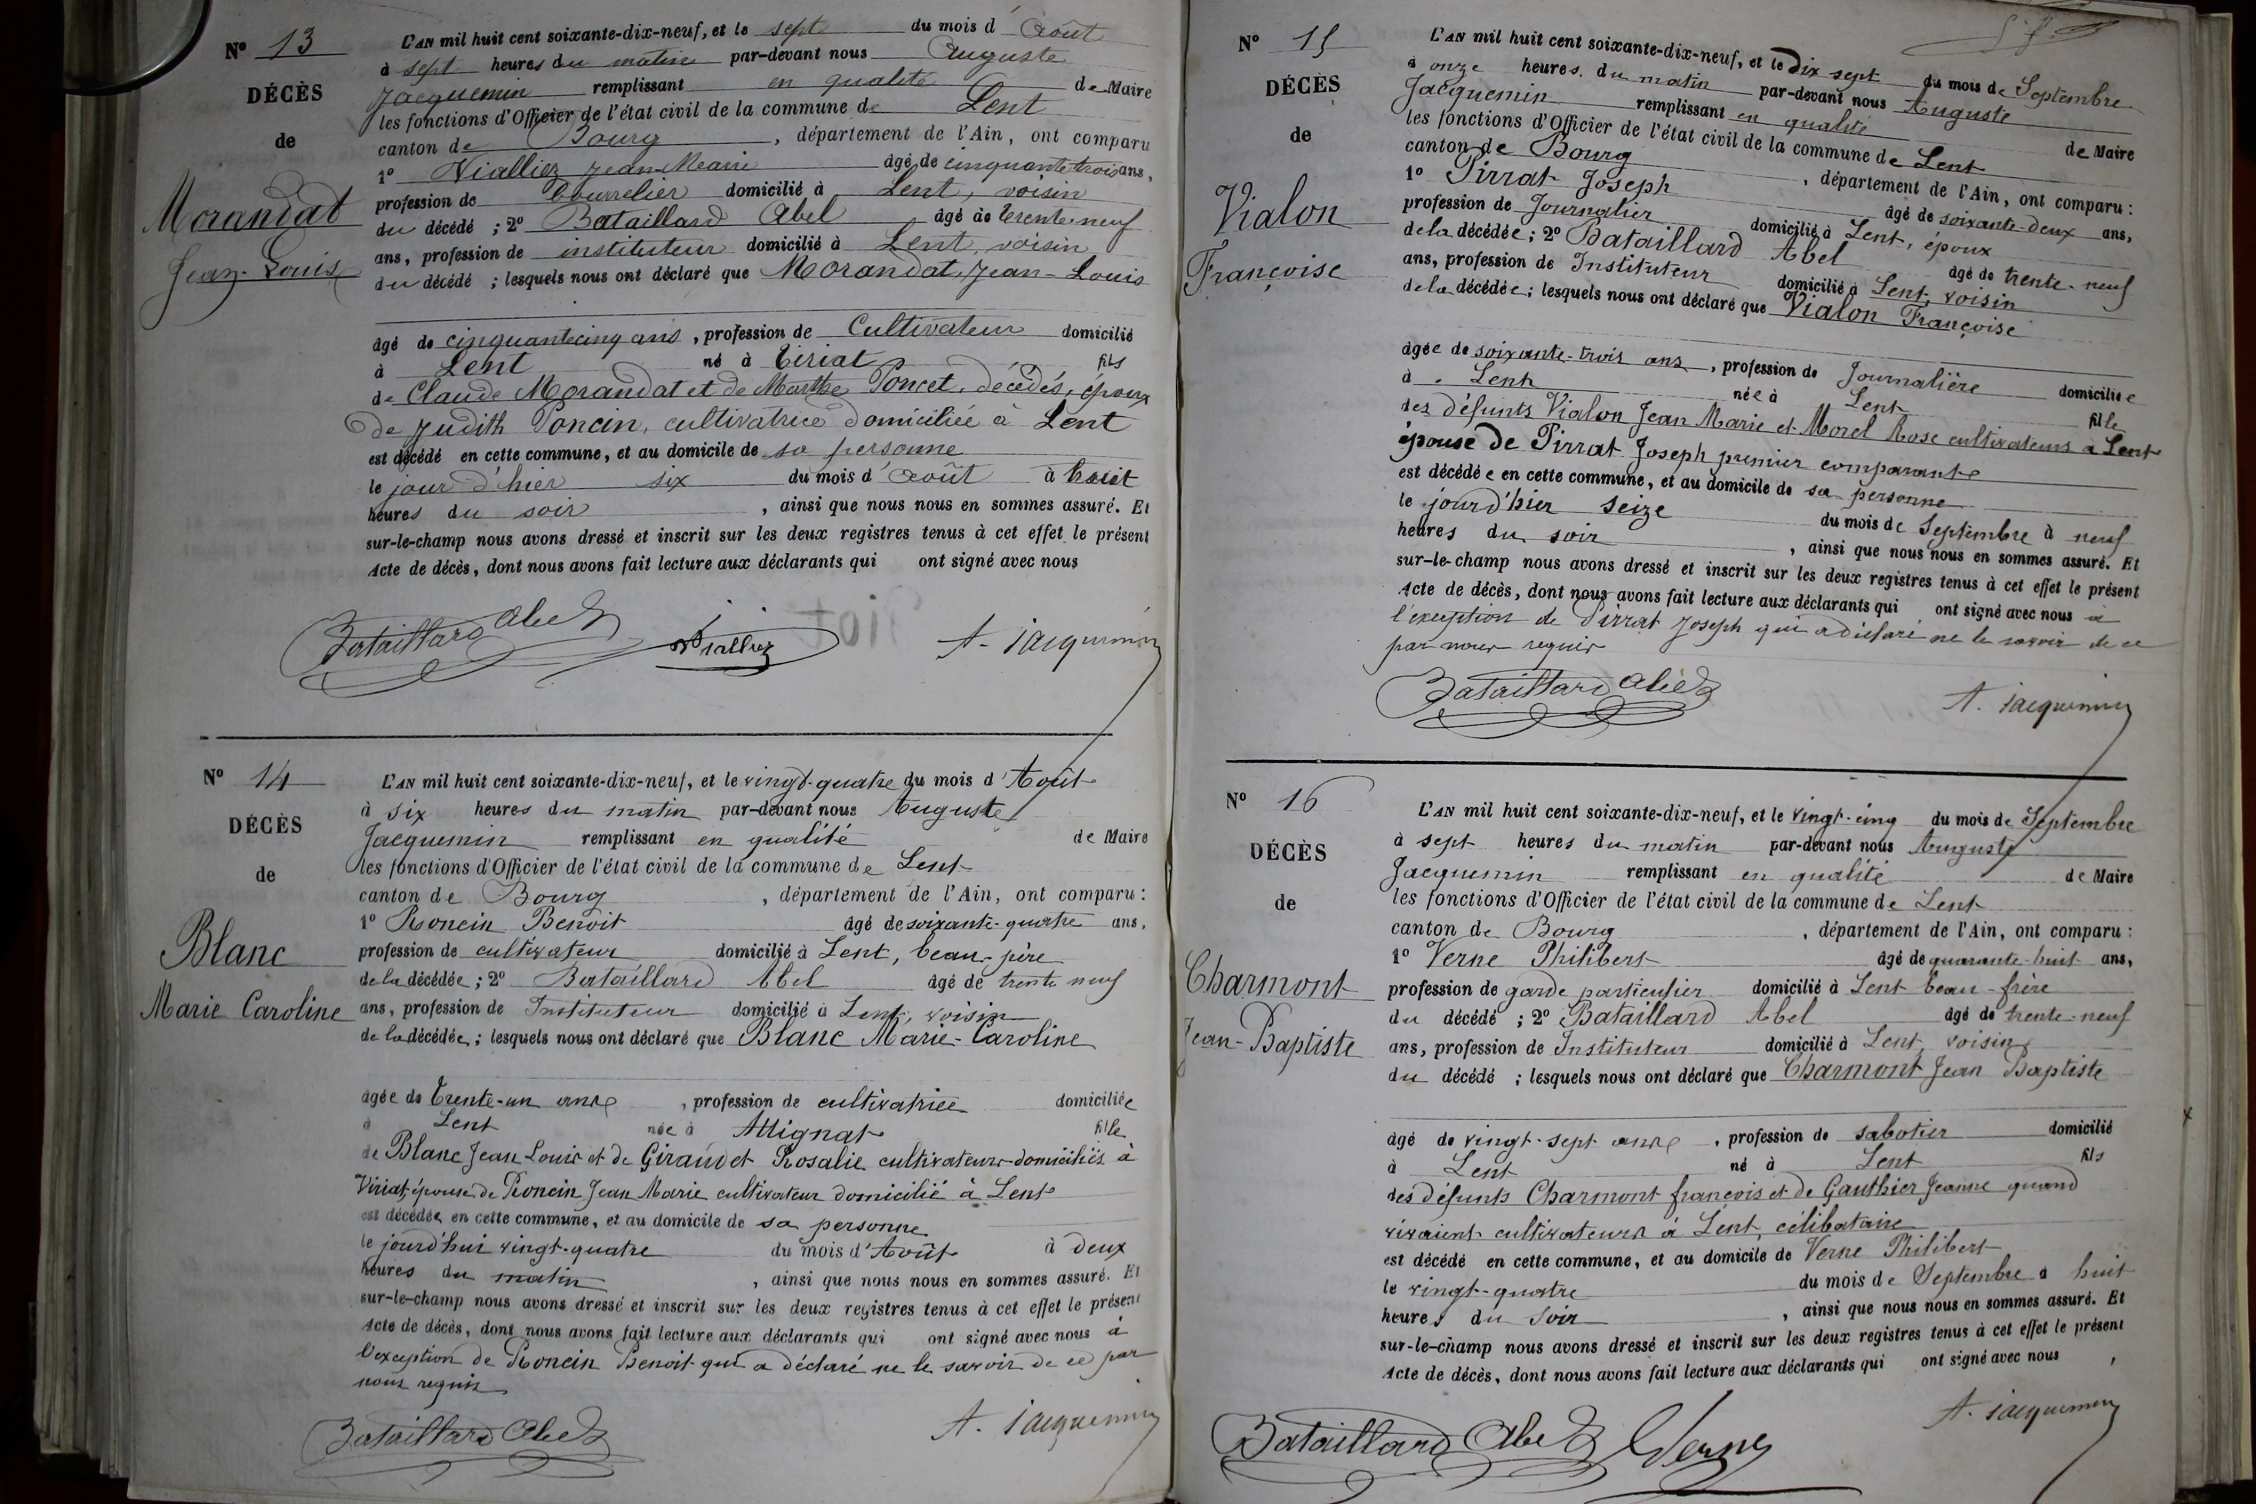 N° 13
DÉCÈS
de
Morandat
Jean-Louis
L'AN mil huit cent soixante-dix-neuf, et le sept du mois d'Août
à sept heures du matin par-devant nous Auguste
Jacquemin remplissant en qualité de Maire
les fonctions d'Officier de l'état civil de la commune de Lent
canton de Bourg, département de l'Ain, ont comparu
1° Vialliez Jean-Marie âgé de cinquante trois ans,
profession de bourrelier domicilié à Lent, voisin
du décédé ; 2° Bataillard Abel âgé de trente-neuf
ans, profession de instituteur domicilié à Lent, voisin
du décédé ; lesquels nous ont déclaré que Morandat, Jean-Louis
âgé de cinquante cinq ans, profession de Cultivateur domicilié
à Lent né à Viriat fils
de Claude Morandat et de Marthe Poncet, décédés, époux
de Judith Poncin, cultivatrice domiciliée à Lent
est décédé en cette commune, et au domicile de sa personne
le jour d'hier six du mois d'Août à huit
heures du soir, ainsi que nous nous en sommes assuré. Et
sur-le-champ nous avons dressé et inscrit sur les deux registres tenus à cet effet le présent
Acte de décès, dont nous avons fait lecture aux déclarants qui ont signé avec nous
Bataillard Abel Vialliez A. Jacquemin
N° 14
DÉCÈS
de
Blanc
Marie Caroline
L'AN mil huit cent soixante-dix-neuf, et le vingt-quatre du mois d'Août
à six heures du matin par-devant nous Auguste
Jacquemin remplissant en qualité de Maire
les fonctions d'Officier de l'état civil de la commune de Lent
canton de Bourg, département de l'Ain, ont comparu :
1° Roncin Benoit âgé de soixante-quatre ans,
profession de cultivateur domicilié à Lent, beau-père
de la décédée ; 2° Bataillard Abel âgé de trente neuf
ans, profession de Instituteur domicilié à Lent, voisin
de la décédée ; lesquels nous ont déclaré que Blanc Marie-Caroline
âgée de trente-un ans, profession de cultivatrice domiciliée
à Lent née à Attignat fille
de Blanc Jean Louis et de Giraudet Rosalie cultivateurs domiciliés à
Viriat, épouse de Roncin Jean Marie cultivateur domicilié à Lent
est décédée en cette commune, et au domicile de sa personne
le jourd'hui vingt-quatre du mois d'Août à deux
heures du matin, ainsi que nous nous en sommes assuré. Et
sur-le-champ nous avons dressé et inscrit sur les deux registres tenus à cet effet le présent
Acte de décès, dont nous avons fait lecture aux déclarants qui ont signé avec nous à
l'exception de Roncin Benoit qui a déclaré ne le savoir de ce par
nous requis
Bataillard Abel A. Jacquemin
N° 15
DÉCÈS
de
Vialon
Françoise
L'AN mil huit cent soixante-dix-neuf, et le Dix sept du mois de Septembre
à onze heures du matin par-devant nous Auguste
Jacquemin remplissant en qualité de Maire
les fonctions d'Officier de l'état civil de la commune de Lent
canton de Bourg, département de l'Ain, ont comparu :
1° Pirrat Joseph âgé de soixante-deux ans,
profession de Journalier domicilié à Lent, époux
de la décédée ; 2° Bataillard Abel âgé de trente-neuf
ans, profession de Instituteur domicilié à Lent, voisin
de la décédée ; lesquels nous ont déclaré que Vialon Françoise
âgée de soixante-trois ans, profession de Journalière domiciliée
à Lent née à Lent fille
des défunts Vialon Jean Marie et Morel Rose cultivateurs à Lent
épouse de Pirrat Joseph premier comparant
est décédée en cette commune, et au domicile de sa personne
le jourd'hier seize du mois de Septembre à neuf
heures du soir, ainsi que nous nous en sommes assuré. Et
sur-le-champ nous avons dressé et inscrit sur les deux registres tenus à cet effet le présent
Acte de décès, dont nous avons fait lecture aux déclarants qui ont signé avec nous à
l'exception de Pirrat Joseph qui a déclaré ne le savoir de ce
par nous requis
Bataillard Abel A. Jacquemin
N° 16
DÉCÈS
de
Charmont
Jean-Baptiste
L'AN mil huit cent soixante-dix-neuf, et le vingt-cinq du mois de Septembre
à sept heures du matin par-devant nous Auguste
Jacquemin remplissant en qualité de Maire
les fonctions d'Officier de l'état civil de la commune de Lent
canton de Bourg, département de l'Ain, ont comparu :
1° Verne Philibert âgé de quarante-huit ans,
profession de garde particulier domicilié à Lent beau-frère
du décédé ; 2° Bataillard Abel âgé de trente-neuf
ans, profession de Instituteur domicilié à Lent, voisin
du décédé ; lesquels nous ont déclaré que Charmont Jean Baptiste
âgé de vingt-sept ans, profession de sabotier domicilié
à Lent né à Lent fils
des défunts Charmont françois et de Gauthier Jeanne quand
vivaient cultivateurs à Lent, célibataire
est décédé en cette commune, et au domicile de Verne Philibert
le vingt-quatre du mois de Septembre à huit
heures du soir, ainsi que nous nous en sommes assuré. Et
sur-le-champ nous avons dressé et inscrit sur les deux registres tenus à cet effet le présent
Acte de décès, dont nous avons fait lecture aux déclarants qui ont signé avec nous
Bataillard Abel Verne A. Jacquemin